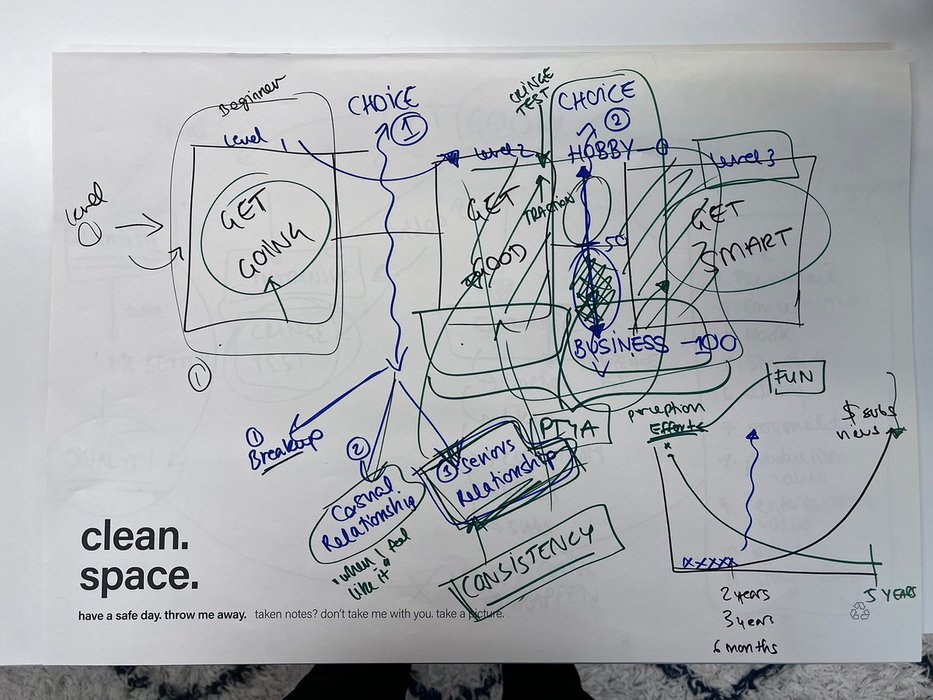 Beginner
level 1
Level
1
GET
GOING
1
CHOICE
1
level 2
GET
GOOD
CRINGE
TEST
TRACTION
CHOICE
2
HOBBY - 0
50
BUSINESS - 100
level 3
GET
SMART
1
Breakup
2
Casual
Relationship
"when I feel
like it"
3 Serious
Relationship
CONSISTENCY
PIYA
perception
Efforts
FUN
$ subs
views
x x x x x
2 years
3 years
6 months
5 YEARS
clean.
space.
have a safe day. throw me away. taken notes? don't take me with you. take a picture.